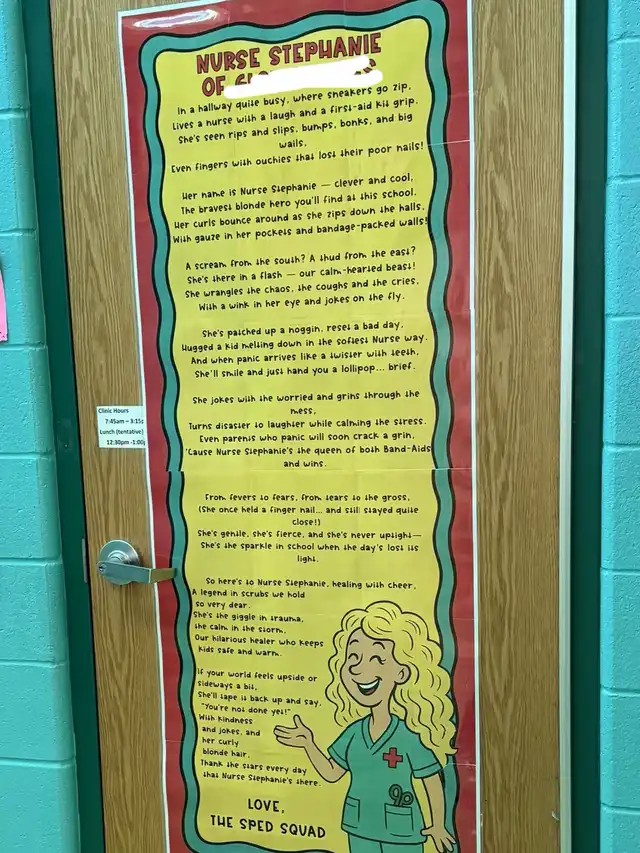 NURSE STEPHANIE
OF
In a hallway quite busy, where sneakers go zip,
Lives a nurse with a laugh and a first-aid kit grip.
She's seen rips and slips, bumps, bonks, and big
wails,
Even fingers with ouchies that lost their poor nails!
Her name is Nurse Stephanie — clever and cool,
The bravest blonde hero you'll find at this school.
Her curls bounce around as she zips down the halls,
With gauze in her pockets and bandage-packed walls!
A scream from the south? A thud from the east?
She's there in a flash — our calm-hearted beast!
She wrangles the chaos, the coughs and the cries,
With a wink in her eye and jokes on the fly.
She's patched up a noggin, reset a bad day,
Hugged a kid melting down in the softest Nurse way.
And when panic arrives like a twister with teeth,
She'll smile and just hand you a lollipop... brief.
She jokes with the worried and grins through the
mess,
Turns disaster to laughter while calming the stress.
Even parents who panic will soon crack a grin,
'Cause Nurse Stephanie's the queen of both Band-Aids
and wins.
Clinic Hours
7:45am – 3:15p
Lunch (tentative)
12:30pm -1:00p
From fevers to fears, from tears to the gross,
(She once held a finger nail... and still stayed quite
close!)
She's gentle, she's fierce, and she's never uptight—
She's the sparkle in school when the day's lost its
light.
So here's to Nurse Stephanie, healing with cheer,
A legend in scrubs we hold
so very dear.
She's the giggle in trauma,
the calm in the storm,
Our hilarious healer who keeps
kids safe and warm.
If your world feels upside or
sideways a bit,
She'll tape it back up and say,
"You're not done yet!"
With kindness
and jokes, and
her curly
blonde hair,
Thank the stars every day
that Nurse Stephanie's there.
LOVE,
THE SPED SQUAD